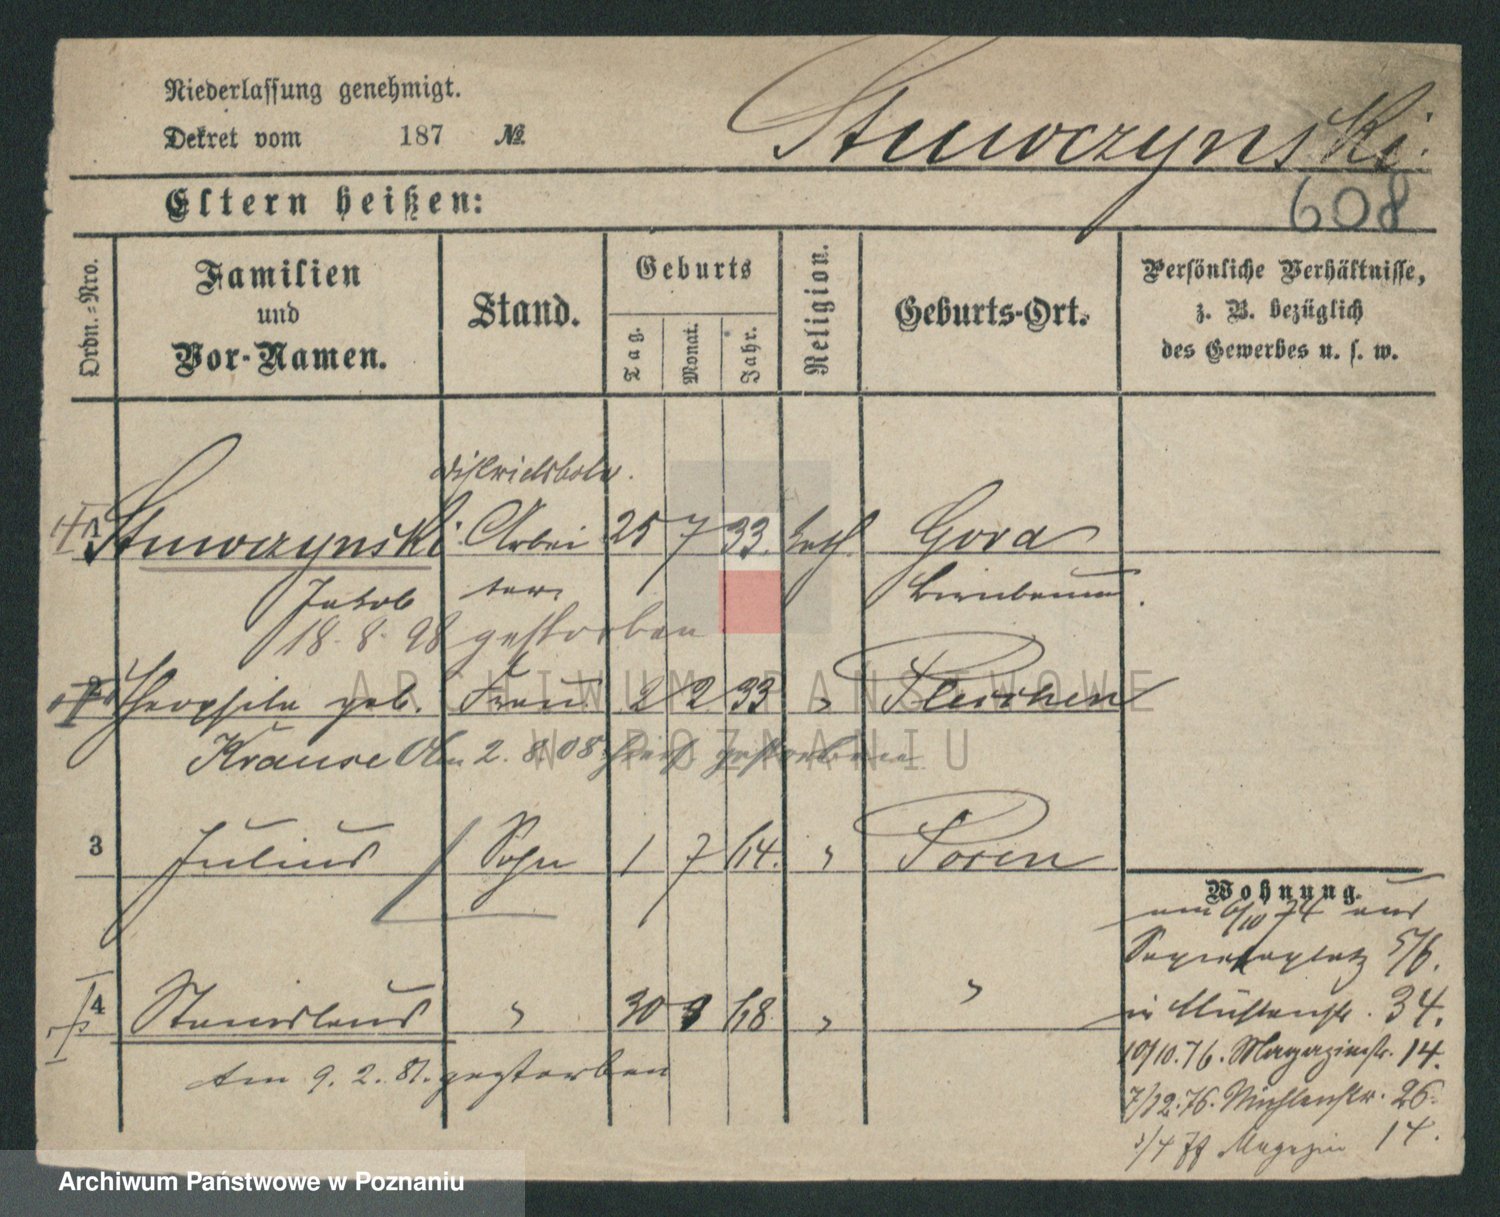 Niederlassung genehmigt.
Dekret vom 187 №
Stuwczynski.
608
Eltern heißen:
Ordn.-Nro.
Familien
und
Vor-Namen.
Stand.
Geburts
Tag.
Monat.
Jahr.
Religion.
Geburts-Ort.
Persönliche Verhältnisse,
z. B. bezüglich
des Gewerbes u. s. w.
Distriktsbote.
1 Stuwczynski Arbei 25 7 33. kath. Gora
Jakob ter. Birnbaum.
18. 8. 98 gestorben
2 Theophila geb. Frau 2 2 33 " Pleschen
Krause Am 2. 8. 08 hier gestorben
3 Julius Sohn 1 7 64. " Posen
Wohnung.
am 6/10 74 aus
Sapiehaplatz 5/6.
4 Stanislaus " 30 9 68 " "
in Mühlenstr. 34.
Am 9. 2. 81. gestorben
10/10. 76. Magazinstr. 14.
7/12. 76. Mühlenstr. 26.
3/4 77 Magazin 14.
ARCHIWUM PAŃSTWOWE
W POZNANIU
Archiwum Państwowe w Poznaniu